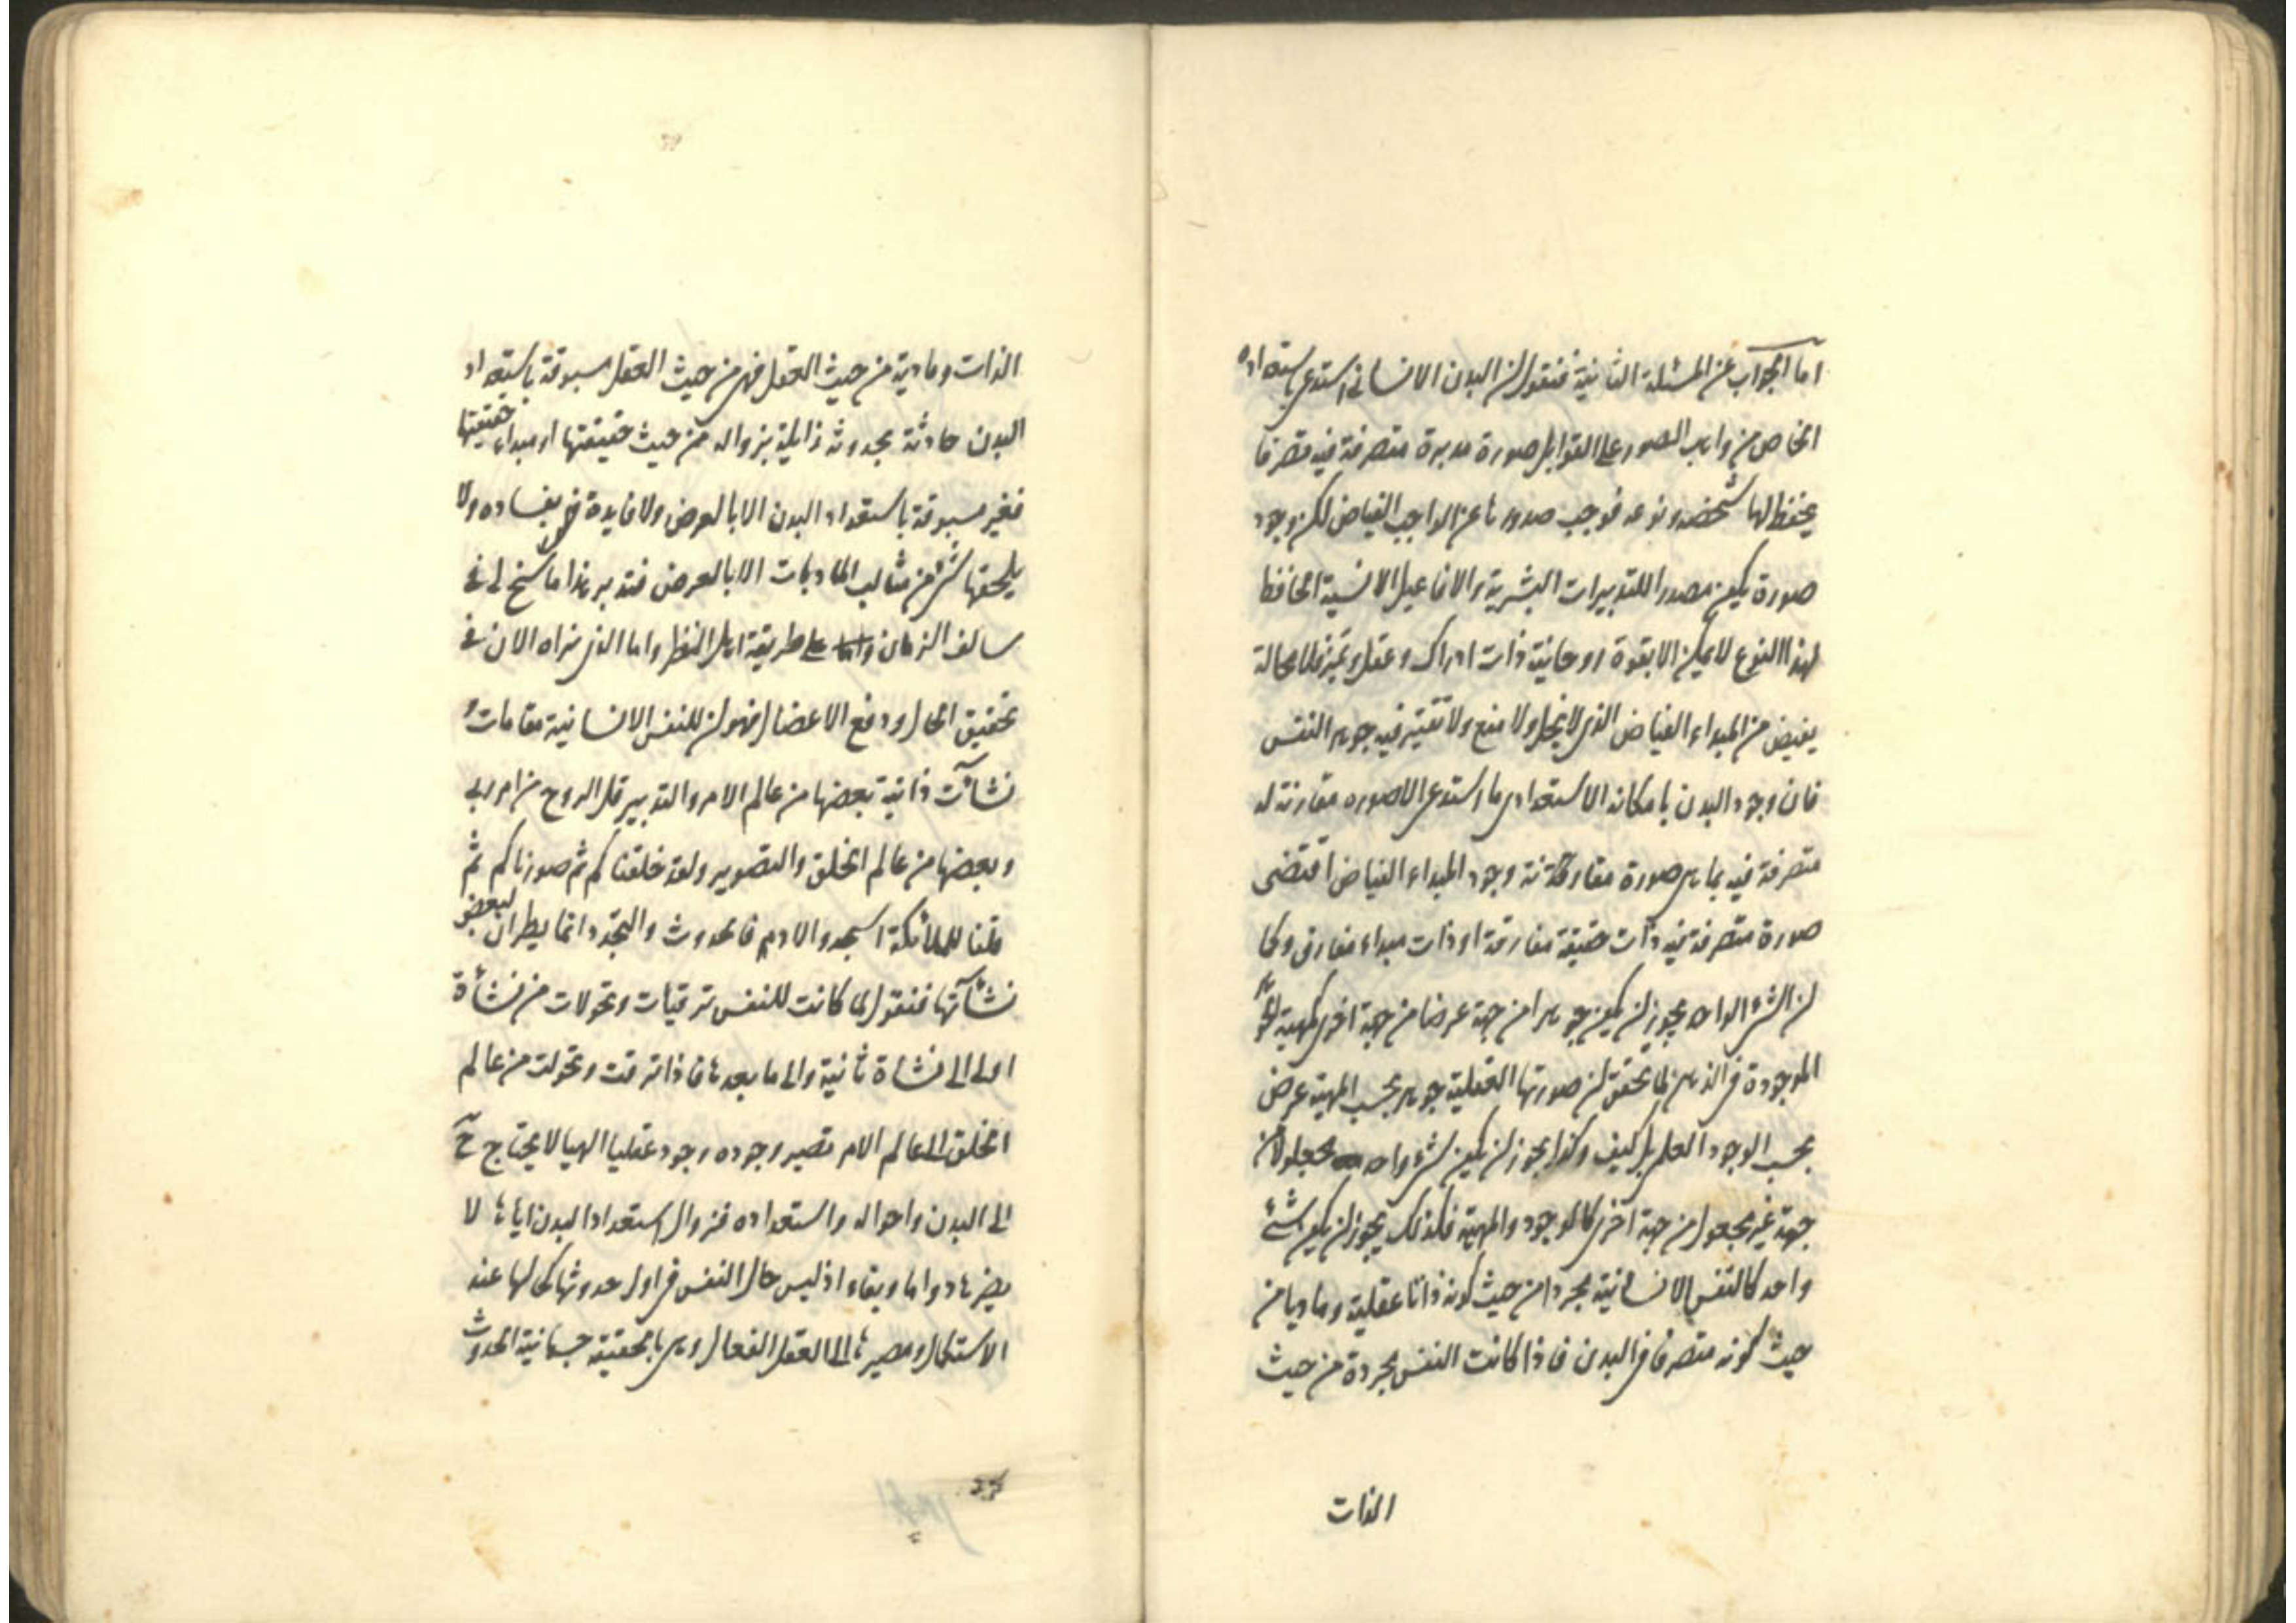 اما الجواب عن المسئلة الثانية فنقول ان البدن الانسانى استدعى باستعداده
الخاص من واهب الصور على القوابل صورة مدبرة متصرفة فيه تصرفا
يحفظ لها شخصه ونوعه فوجب صدورها عن الواجب الفياض لكن وجود
صورة يكون مصدرا للتدبيرات البشرية والافاعيل الانسية الحافظ
لهذا النوع لا يمكن الا بقوة روحانية ذات ادراك وعقل وتميز فلا محالة
يفيض من المبداء الفياض الذى لا بخل ولا منع ولا تقتير فيه جوهر النفس
فان وجود البدن بامكانه الاستعدادى ما استدعى الا صوره مقارنة له
متصرفة فيه بما هى صورة مقارنة وجود المبداء الفياض اقتضى
صورة متصرفة فيه ذات حقيقة مفارقة او ذات مبداء مفارق وكما
ان الشئ الواحد يجوز ان يكون جوهرا من جهة عرضا من جهة اخرى كمهية الجوهر
الموجودة فى الذهن لما تحقق ان صورتها العقلية جوهر بحسب المهية عرض
بحسب الوجود العلمى بل كيف وكذا يجوز ان يكون شئ واحد مجعولا من
جهة غير مجعول من جهة اخرى كالوجود والمهية فكذلك يجوز ان يكون شئ
واحد كالنفس الانسانية مجردا من حيث كونه ذاتا عقلية وماديا من
حيث كونه متصرفا فى البدن فاذا كانت النفس مجردة من حيث
الذات
الذات ومادية من حيث الفعل فهى من حيث الفعل مسبوقة باستعداد
البدن حادثة بحدوثه زايلة بزواله فمن حيث حقيقتها او مبداء حقيقتها
فغير مسبوقة باستعداد البدن الا بالعرض ولا فايدة بفساده ولا
يلحقها شئ من مثالب الماديات الا بالعرض فتدبر هذا ما سنح لى فى
سالف الزمان على طريقة اهل النظر واما الذى نراه الان فى
تحقيق الحال ودفع الاعضال فهو ان للنفس الانسانية مقامات و
نشآت ذاتية بعضها من عالم الامر والتدبير قل الروح من امر ربى
وبعضها من عالم الخلق والتصوير ولقد خلقناكم ثم صورناكم ثم
قلنا للملائكة اسجدوا لادم فالحدوث والتجدد انما يطران لبعض
نشآتها فنقول لما كانت للنفس ترقيات وتحولات من نشأة
اولى الى نشاة ثانية والى ما بعدها فاذا ترقت وتحولت من عالم
الخلق الى عالم الامر تصير وجوده وجود عقليا الهيا لا يحتاج ح
الى البدن واحواله واستعداده فزوال استعداد البدن اياها لا
يضرها دواما وبقاء اذ ليس حال النفس فى اول حدوثها كحالها عند
الاستكمال ومصيرها الى العقل الفعال وهى بالحقيقة جسمانية الحدوث